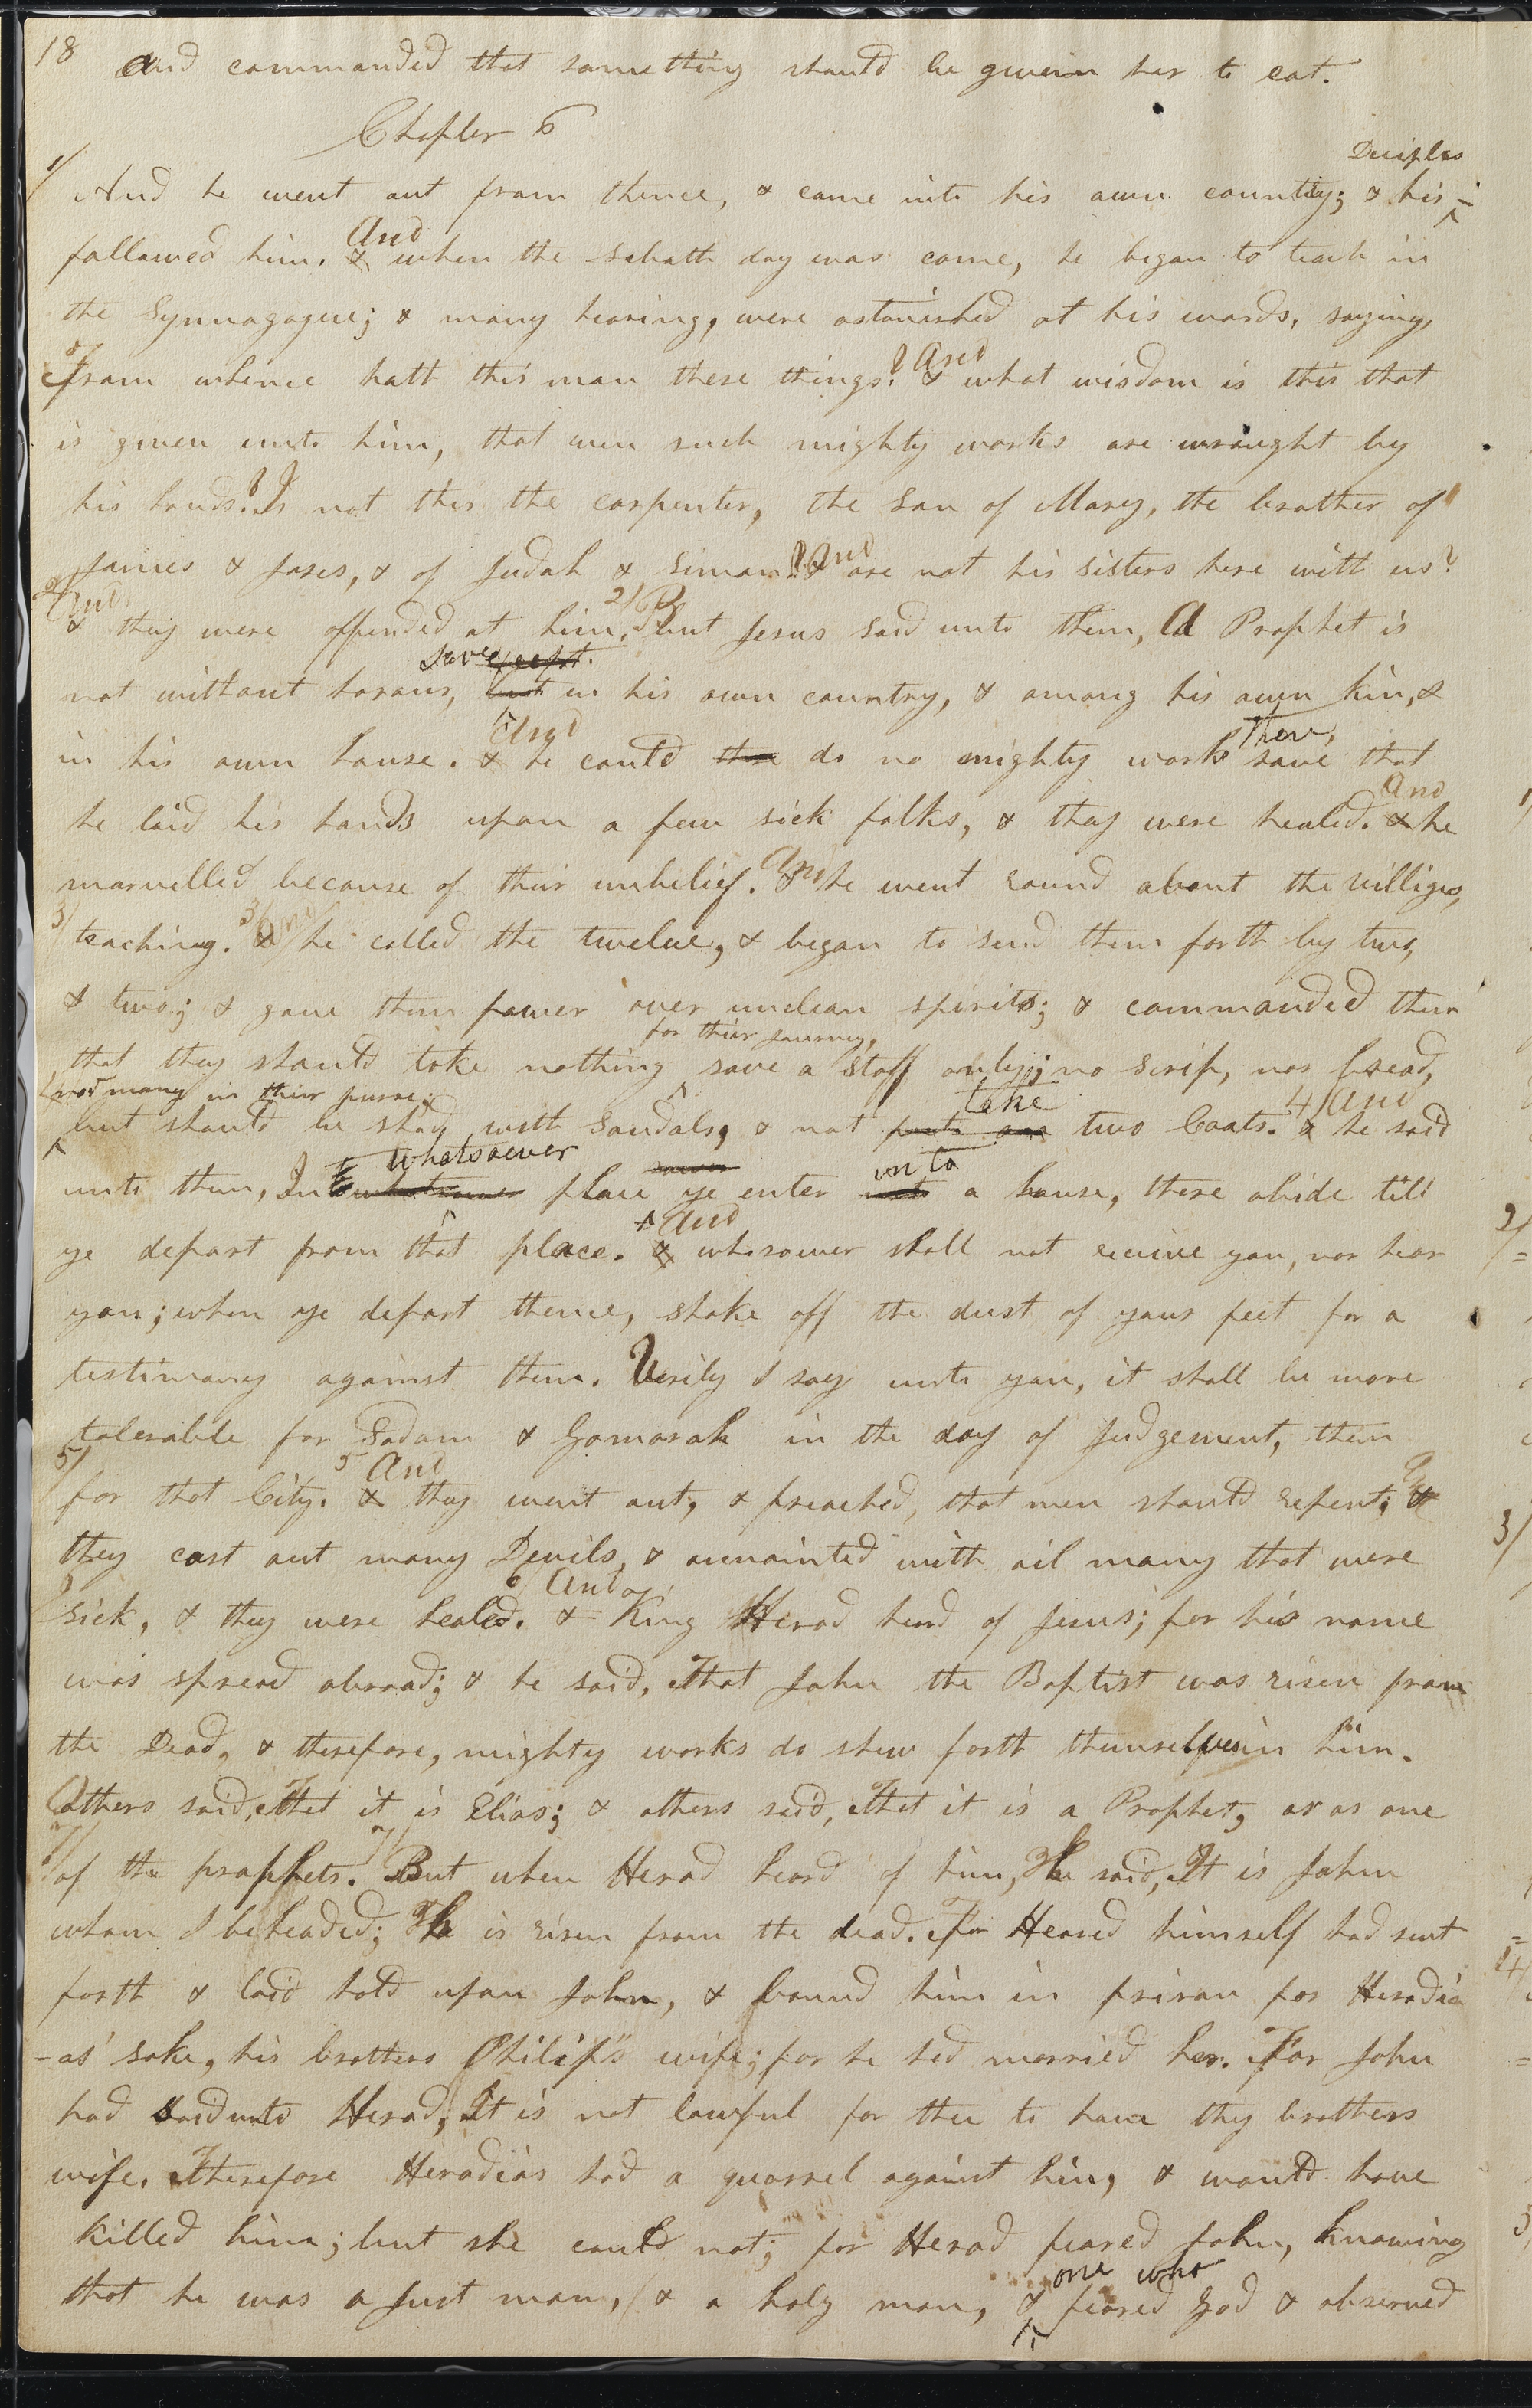 18 and commanded that something should be given her to eat.
Chapter 6
Deciples
1/ And he went out from thence, & came into his own country; & his
And
followed him. & when the sabath day was come, he began to teach in
the Synnagogue; & many hearing, were astonished at his words, saying,
And
From whence hath this man these things? & what wisdom is this that
is given unto him, that even such mighty works are wraught by
his hands? Is not this the carpenter, the son of Mary, the brother of
And
James & Joses, & of Judah & Simon? & are not his sisters here with us?
2/ And 2/ B
& they were offended at him. but Jesus said unto them, A Prophet is
save except.
not without honour, but in his own country, & among his own kin, &
And there,
in his own house. & he could there do no mighty work save that
And
he laid his hands upon a few sick folks, & they were healed. & he
And
marvelled because of their unbelief. & he went round about the villiges,
3/ 3/ And
teaching. & he called the twelve, & began to send them forth by two,
& two; & gave them power over unclean spirits; & commanded them
for their journey,
that they should take nothing save a staff only; no scrip, nor bread,
nor mony in their purse; take 4/ And
but should be shod with sandals, & not put on two Coats. & he said
whatsoever soever into
unto them, In whatsoever place ye enter into a house, there abide till
And
ye depart from that place. & whosoever shall not receive you, nor hear
you; when ye depart thence, shake off the dust of your feet for a
testimony against them. Verily I say unto you, it shall be more
tolerable for Sodom & Gomorah in the day of Judgement, then
5/ 5 And
for that City. & they went out, & preached, that men should repent; &
they cast out many Devils, & annointed with oil many that were
6/ And
sick, & they were healed. & King Herod heard of Jesus; for his name
was spread abroad; & he said, That John the Baptist was risen from
the Dead, & therefore, mighty works do shew forth themselves in him.
Others said, That it is Elias; & others said, That it is a Prophet, or as one
7/ 7/
of the prophets. But when Herod heard of him, he said, It is John
whom I beheaded; he is risen from the dead. For Heared himself had sent
forth & laid hold upon John, & bound him in prison for Herodia
-as' sake, his brothers Philip's wife; for he had married her. For John
had said unto Herod, It is not lawful for thee to have thy brothers
wife. Therefore Herodias had a quarrel against him, & would have
killed him; but she could not; for Herod feared John, knowing
one who
that he was a Just man, & a holy man, & feared God & observed